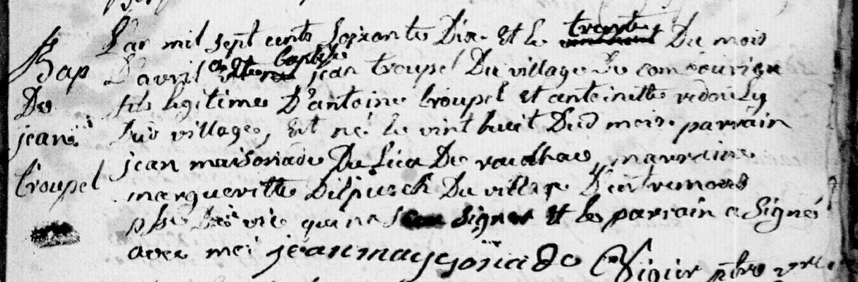 L'an mil sept cents soixante Dix et le trente Du mois
Bap D'avril a été baptisé jean troupel Du village De
De fils legitime D'antoine troupel et antoinette
jean Dud village, est né le vint huit Dud mois parrain
troupel jean maisoniade Du lieu De marraine
margueritte Delpuech Du village D'entremons
qui na signer et le parrain a signé
avec moi jean maysoniade Vigier ptre